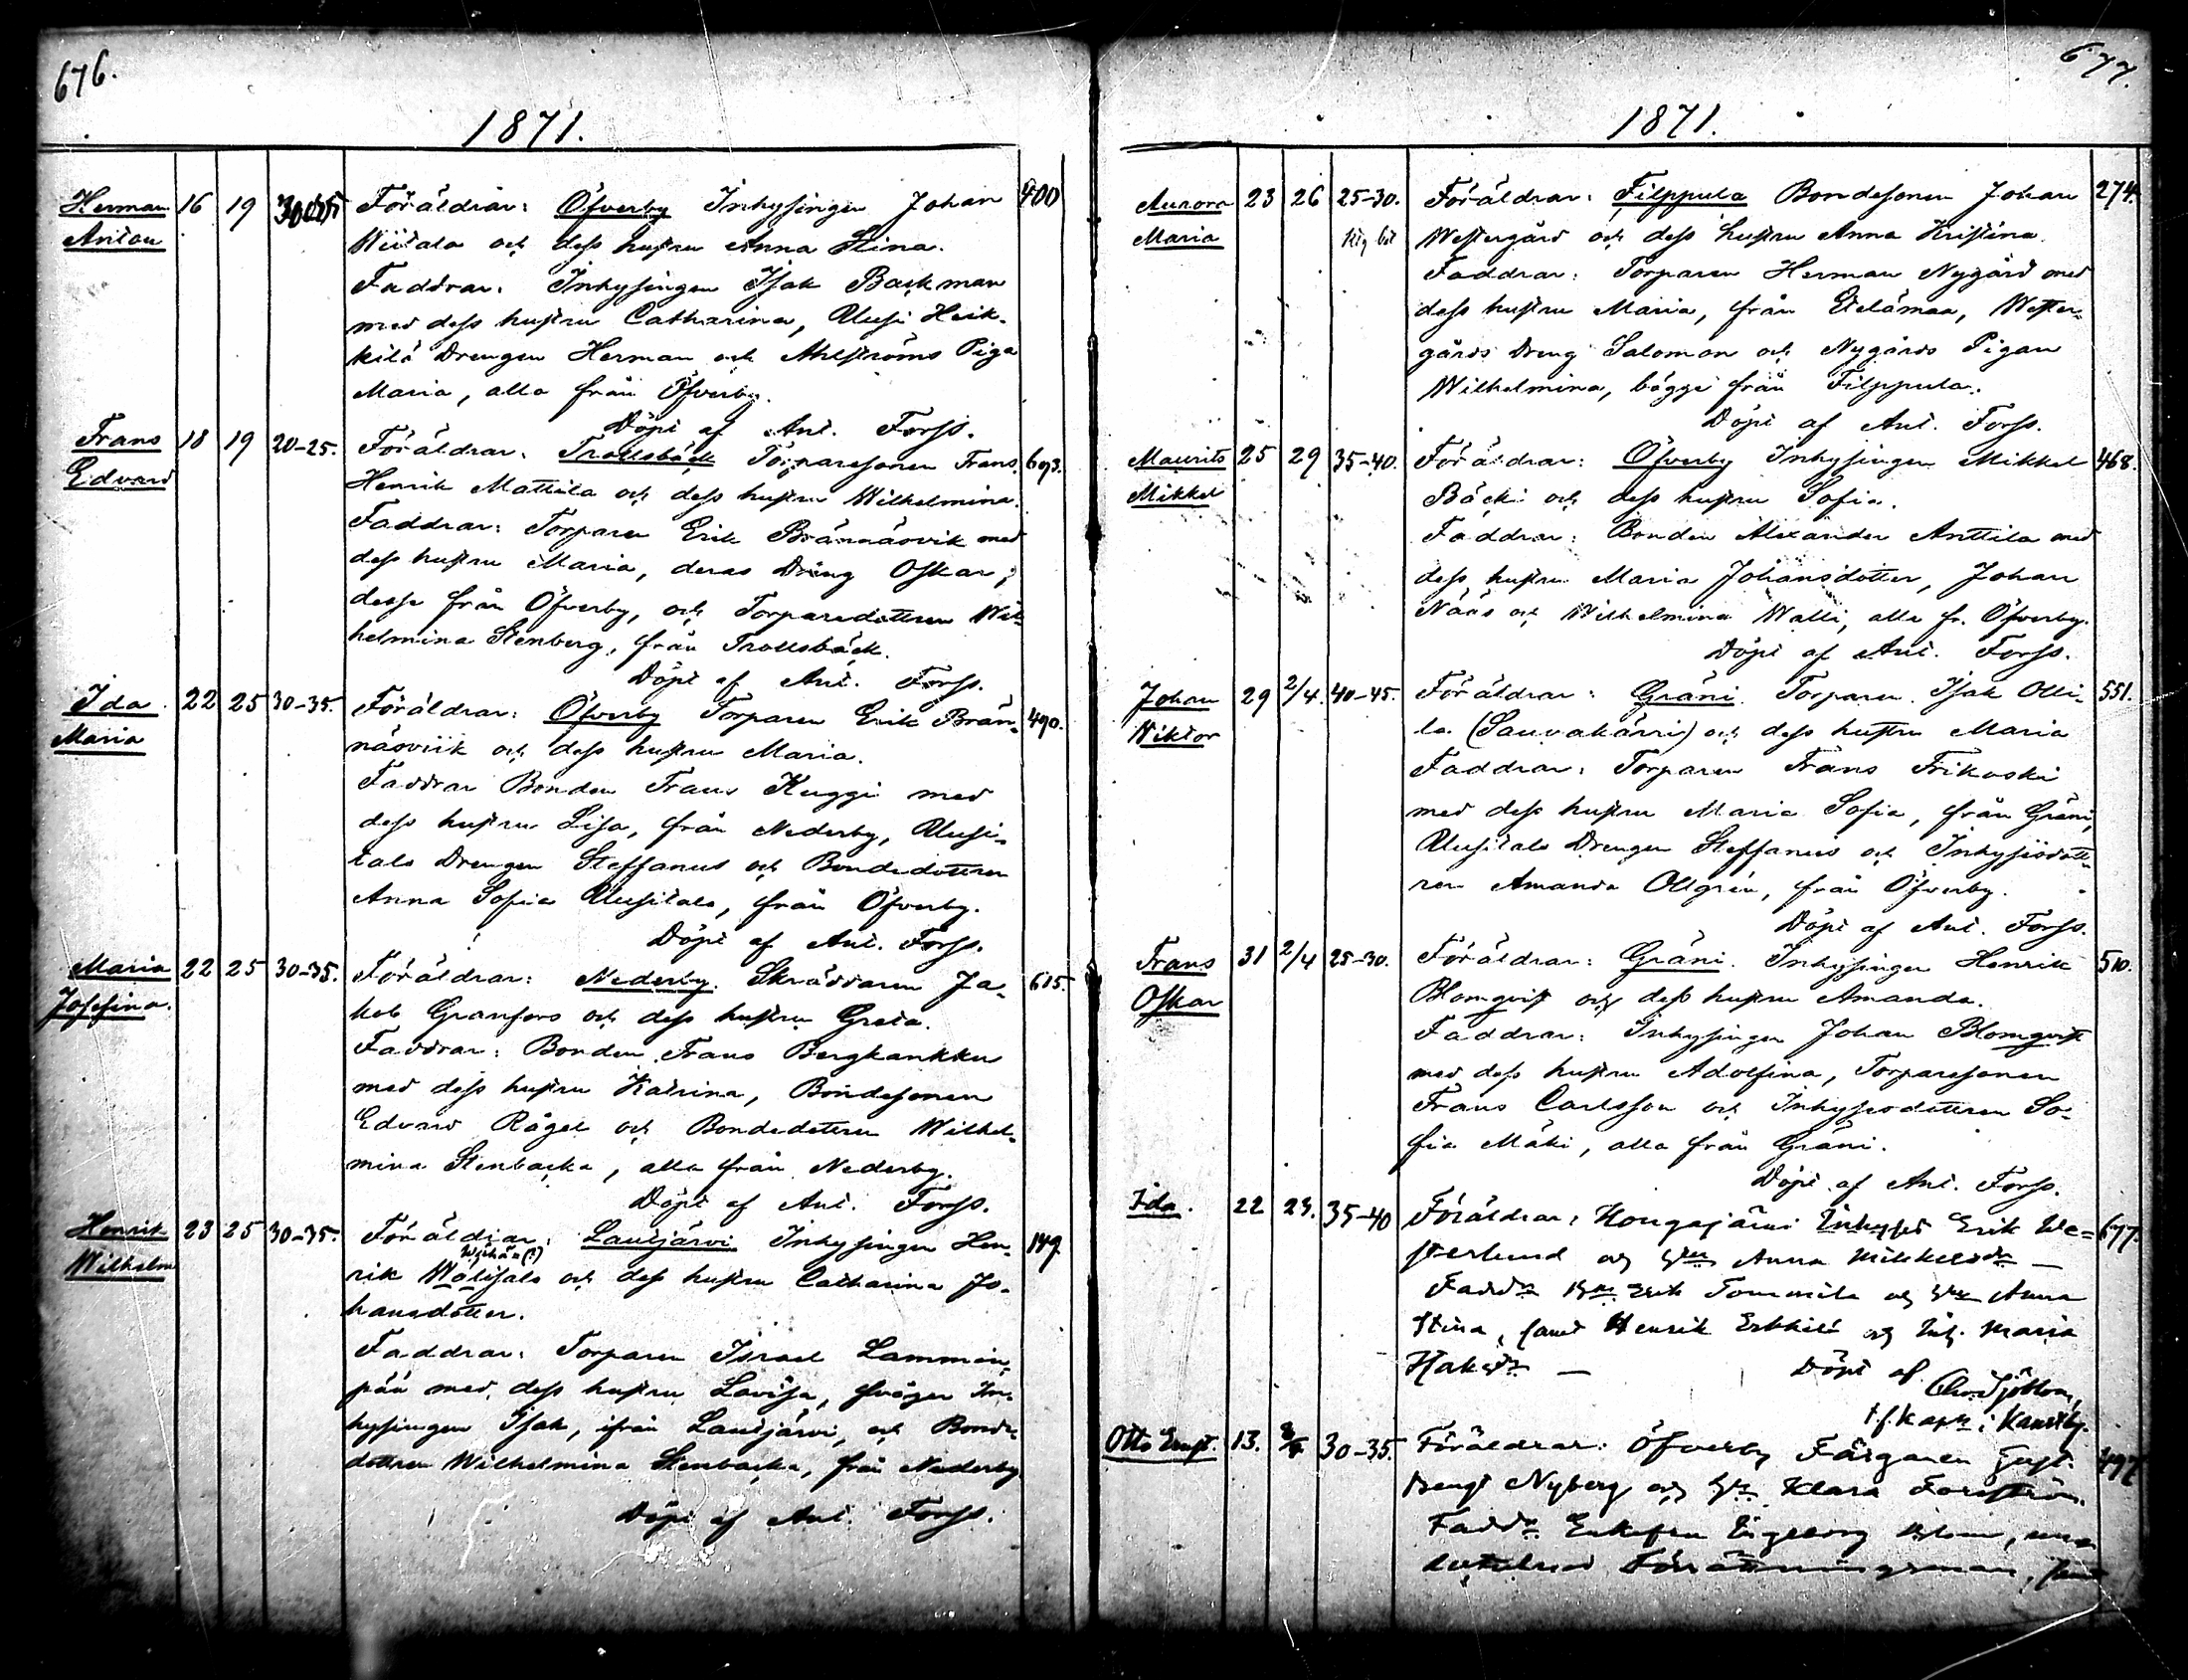 676.
1871.
Herman 16 19 Föräldrar: Öfverby Inhysingen Johan 400
Anton Wiitala och dess hustru Anna Stina.
Faddrar: Inhysingen Isak Backman
med dess hustru Catharina, Uusi Heik-
kilä Drengen Herman och Ahlströms Piga
Maria, alla från Öfverby.
Döpt af Ant. Forss.
Frans 18 19 20-25. Föräldrar: Trollsbäck Torparesonen Frans 693.
Edvard Henrik Mattila och dess hustru Wilhelmina.
Faddrar: Torparen Erik Brännäsvik med
dess hustru Maria, deras Dräng Oskar,
desse från Öfverby, och Torparedottren Wil-
helmina Stenberg, från Trollsbäck.
Döpt af Ant. Forss.
Ida 22 25 30-35. Föräldrar: Öfverby Torparen Erik Brän- 490.
Maria näsviik och dess hustru Maria.
Faddrar Bonden Frans Kuggi med
dess hustru Lisa, från Nederby, Uusi-
talo Drengen Steffanus och Bondedottren
Anna Sofia Uusitalo, från Öfverby.
Döpt af Ant. Forss.
Maria 22 25 30-35. Föräldrar: Nederby. Skräddaren Ja- 615.
Josefina. kob Granfors och dess hustru Greta.
Faddrar: Bonden Frans Bergkankku
med dess hustru Katrina, Bondesonen
Edvard Rågel och Bondedottren Wilhel-
mina Stenbacka, alla från Nederby.
Döpt af Ant. Forss.
Henrik 23 25 30-35. Föräldrar: Lautjärvi Inhysingen Hen- 149.
Wilhelm rik Välitalo och dess hustru Catharina Jo-
hansdotter.
Faddrar: Torparen Israel Lammin-
pää med dess hustru Lovisa, svåger In-
hysingen Isak, ifrån Lautjärvi, och Bonde-
dottren Wilhelmina Stenbacka, från Nederby
Döpt af Ant. Forss.
677.
1871.
Aurora 23 26 25-30. Föräldrar: Filppula Bondesonen Johan 274.
Maria Westergård och dess hustru Anna Kristina.
Faddrar: Torparen Herman Nygård med
dess hustru Maria, från Etelämaa, Wester-
gårds Dreng Salomon och Nygårds Pigan
Wilhelmina, bägge från Filppula.
Döpt af Ant. Forss.
Maurits 25 29 35-40. Föräldrar: Öfverby Inhysingen Mikkel 468.
Mikkel Bäcki och dess hustru Sofia.
Faddrar: Bonden Alexander Anttila med
dess hustru Maria Johansdotter, Johan
Nääs och Wilhelmina Walli, alla fr. Öfverby.
Döpt af Ant. Forss.
Johan 29 2/4. 40-45. Föräldrar: Gräni Torparen Isak Olli- 551.
Wiktor la (Sauvakärri) och dess hustru Maria
Faddrar: Torparen Frans Frikoski
med dess hustru Maria Sofia, från Gräni,
Uusitalo Drengen Steffanus och Inhysisdott-
ren Amanda Ollgrén, från Öfverby.
Döpt af Ant. Forss.
Frans 31 2/4 25-30. Föräldrar: Gräni. Inhysingen Henrik 510.
Oskar Blomqvist och dess hustru Amanda.
Faddrar: Inhysingen Johan Blomqvist
med dess hustru Adolfina, Torparesonen
Frans Carlsson och Inhysesdottren So-
fia Mäki, alla från Gräni.
Döpt af Ant. Forss.
Ida. 22 23. 35-40 Föräldrar: Kongajärvi Inhyses Erik We- 677.
sterlund och Anna Mikkelsdr —
Faddr Erik Tommila och Anna
Stina, samt Henrik Erkkilä och Maria
— Döpt af
t.f. Kapn i Kaustby.
Otto Ernst. 13. 30-35. Föräldrar: Öfverby Färgaren Gust. 497.
Bengt Nyberg och Klara Forsström.
Faddr Enkefru Ingeborg